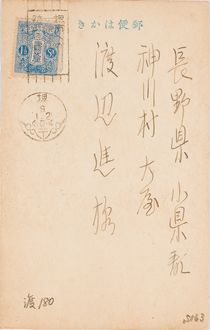 郵便はかき
長野県 小県郡
神川村 大屋
渡辺進様
渡180
S163